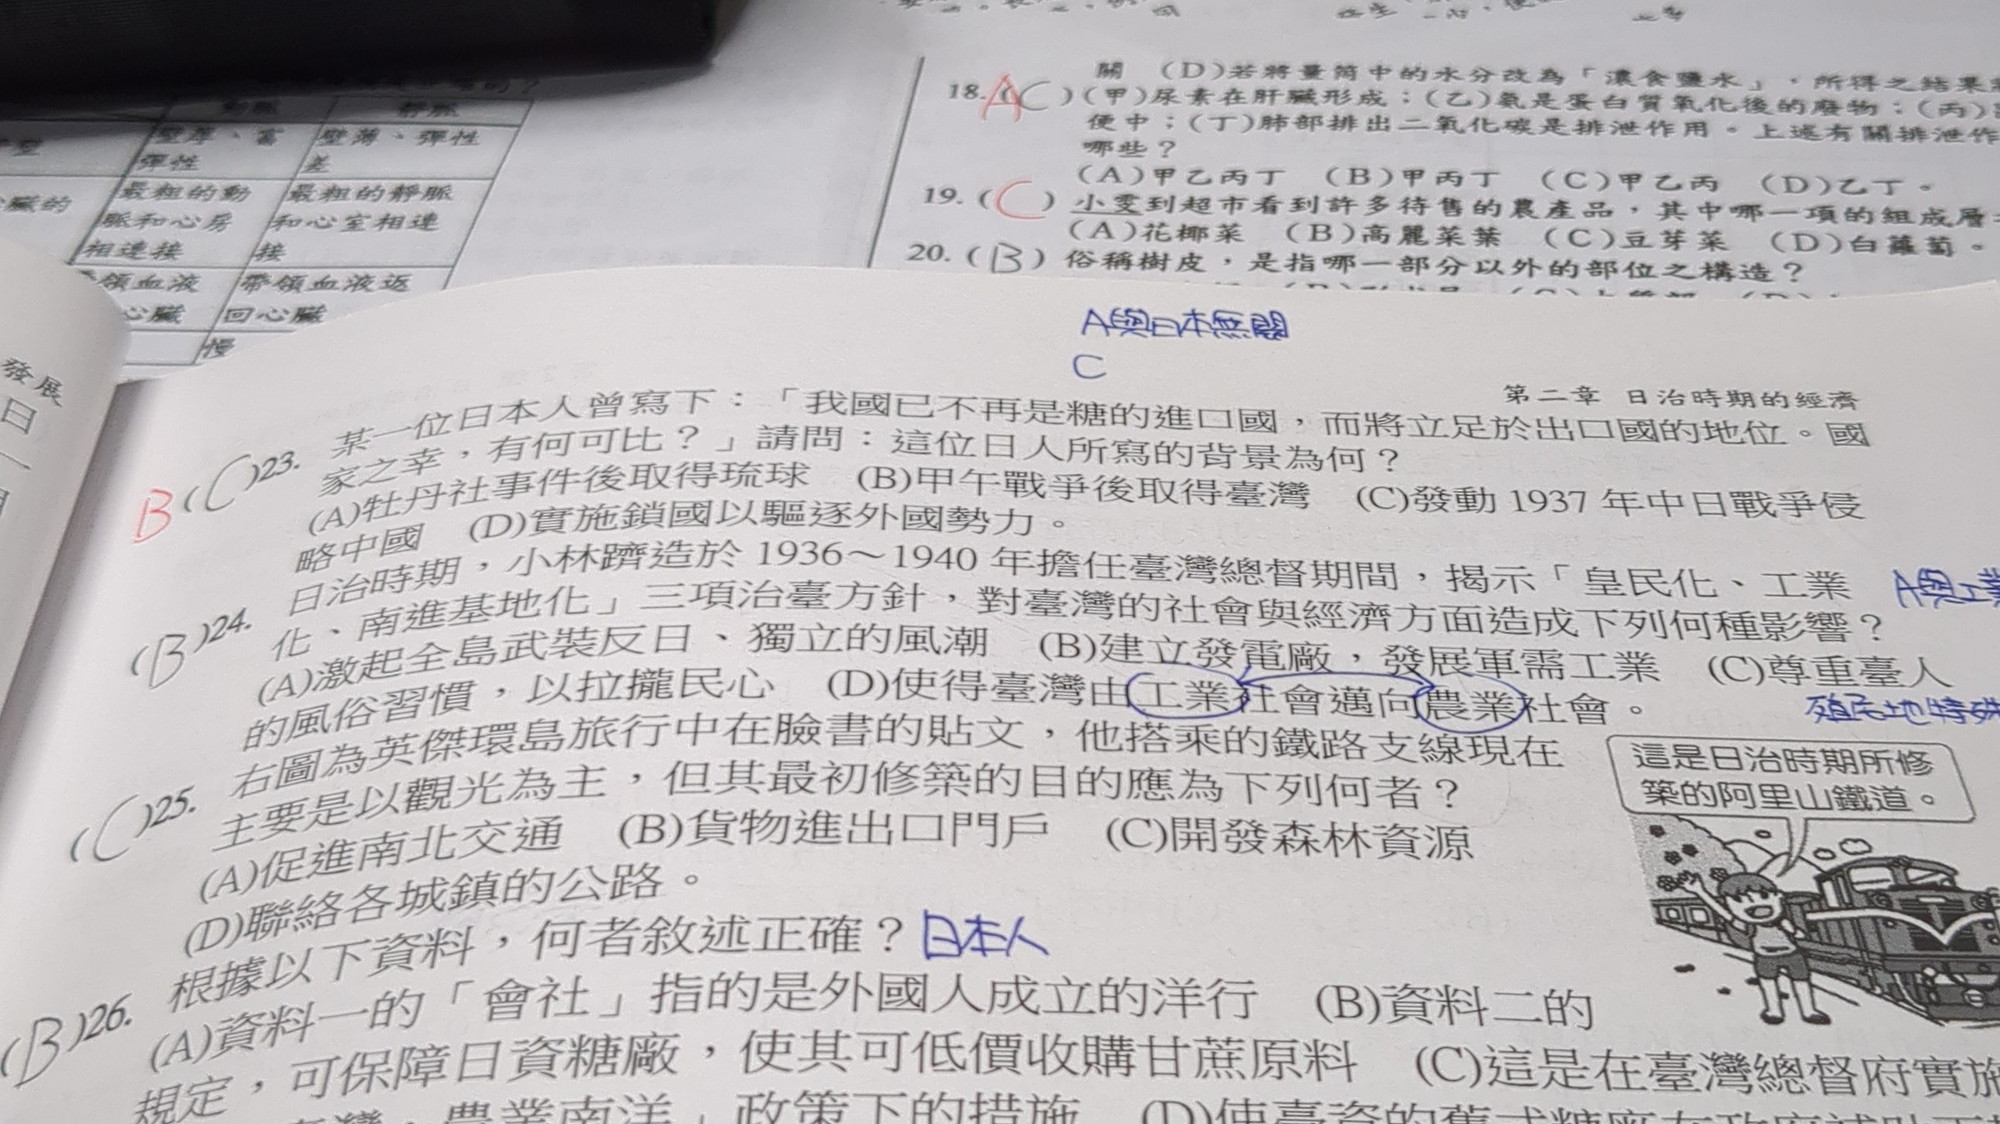 動脈 靜脈
壁厚、富 壁薄、彈性
彈性 差
臟的 最粗的動 最粗的靜脈
脈和心房 和心室相連
相連接 接
帶領血液 帶領血液返
心臟 回心臟
慢
關 (D)若將量筒中的水分改為「濃食鹽水」,所得之結果
18. A (C)(甲)尿素在肝臟形成;(乙)氨是蛋白質氧化後的廢物;(丙)
便中;(丁)肺部排出二氧化碳是排泄作用。上述有關排泄作
哪些?
(A)甲乙丙丁 (B)甲丙丁 (C)甲乙丙 (D)乙丁。
19. (C) 小雯到超市看到許多待售的農產品,其中哪一項的組成層
(A)花椰菜 (B)高麗菜葉 (C)豆芽菜 (D)白蘿蔔。
20. (B) 俗稱樹皮,是指哪一部分以外的部位之構造?
發展
日
A與日本無關
C
第二章 日治時期的經濟
B (C)23. 某一位日本人曾寫下:「我國已不再是糖的進口國,而將立足於出口國的地位。國
家之幸,有何可比?」請問:這位日人所寫的背景為何?
(A)牡丹社事件後取得琉球 (B)甲午戰爭後取得臺灣 (C)發動 1937 年中日戰爭侵
略中國 (D)實施鎖國以驅逐外國勢力。
(B)24. 日治時期,小林躋造於 1936~1940 年擔任臺灣總督期間,揭示「皇民化、工業
A與工業
化、南進基地化」三項治臺方針,對臺灣的社會與經濟方面造成下列何種影響?
(A)激起全島武裝反日、獨立的風潮 (B)建立發電廠,發展軍需工業 (C)尊重臺人
的風俗習慣,以拉攏民心 (D)使得臺灣由工業社會邁向農業社會。
殖民地特殊
(C)25. 右圖為英傑環島旅行中在臉書的貼文,他搭乘的鐵路支線現在
主要是以觀光為主,但其最初修築的目的應為下列何者?
(A)促進南北交通 (B)貨物進出口門戶 (C)開發森林資源
(D)聯絡各城鎮的公路。
這是日治時期所修
築的阿里山鐵道。
(B)26. 根據以下資料,何者敘述正確? 日本人
(A)資料一的「會社」指的是外國人成立的洋行 (B)資料二的
規定,可保障日資糖廠,使其可低價收購甘蔗原料 (C)這是在臺灣總督府實施
臺灣、農業南洋」政策下的措施 (D)使臺資的舊式糖廠在政府補助下